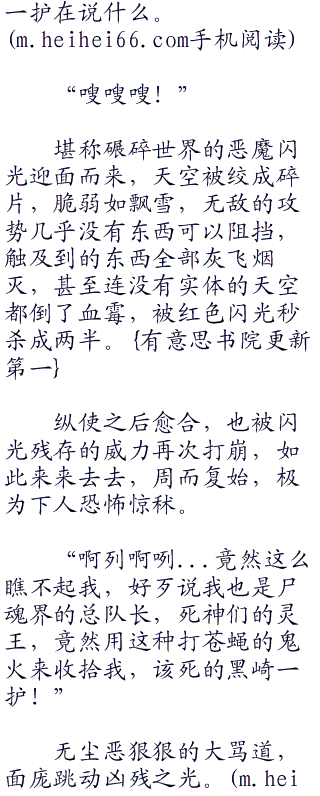 一护在说什么。
(m.heihei66.com手机阅读)
“嗖嗖嗖！”
堪称碾碎世界的恶魔闪
光迎面而来，天空被绞成碎
片，脆弱如飘雪，无敌的攻
势几乎没有东西可以阻挡，
触及到的东西全部灰飞烟
灭，甚至连没有实体的天空
都倒了血霉，被红色闪光秒
杀成两半。{有意思书院更新
第一}
纵使之后愈合，也被闪
光残存的威力再次打崩，如
此来来去去，周而复始，极
为下人恐怖惊秫。
“啊列啊咧...竟然这么
瞧不起我，好歹说我也是尸
魂界的总队长，死神们的灵
王，竟然用这种打苍蝇的鬼
火来收拾我，该死的黑崎一
护！”
无尘恶狠狠的大骂道，
面庞跳动凶残之光。(m.hei